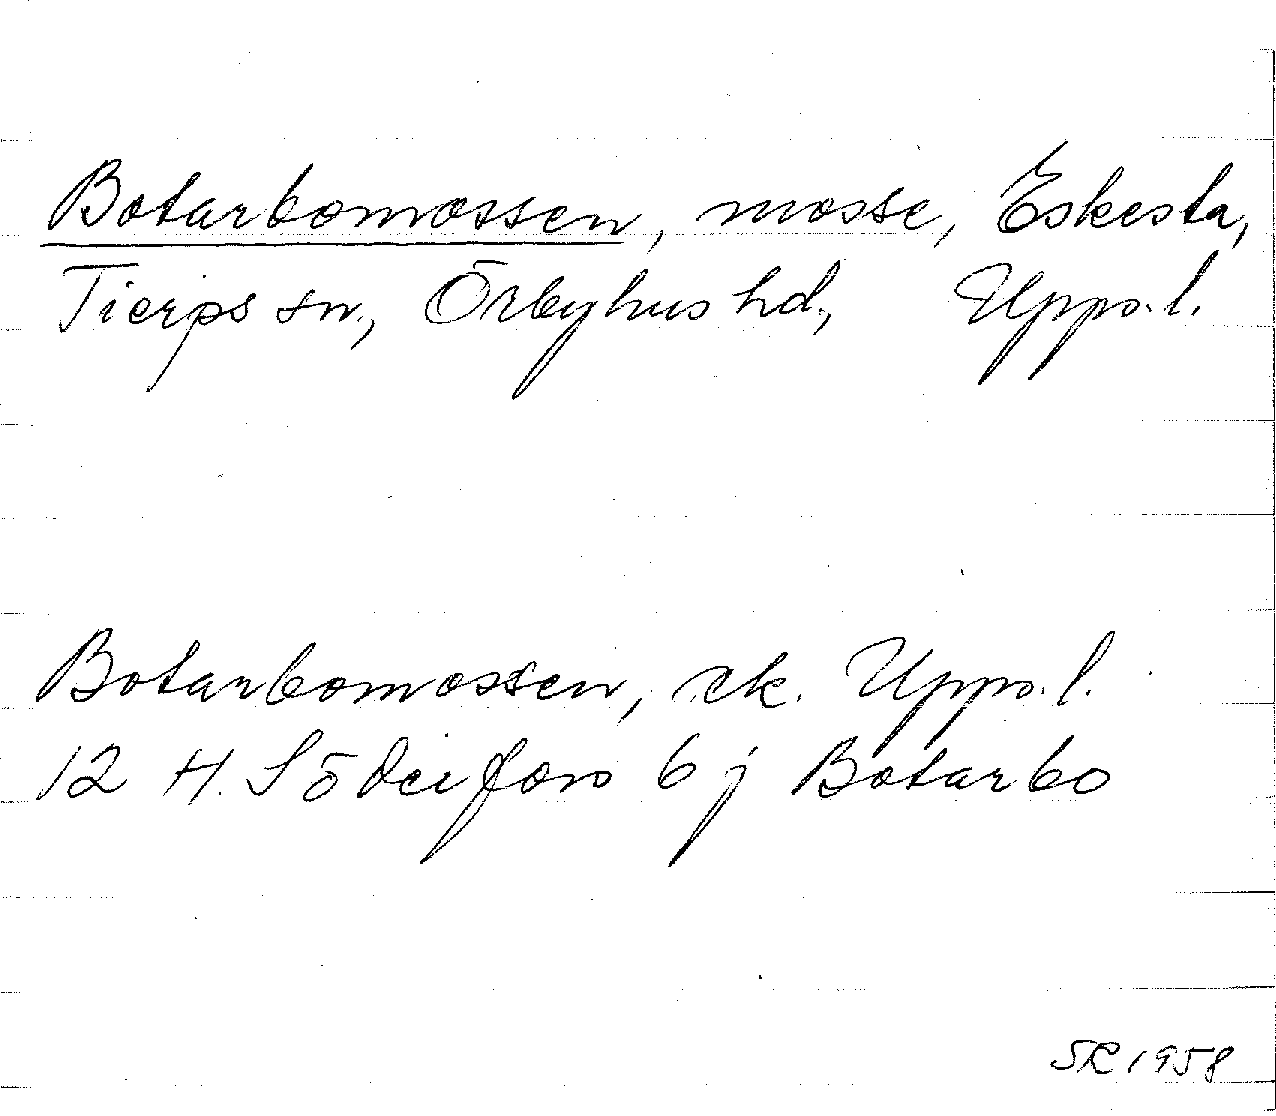 Botarbomossen, mosse, Eskesta,
Tierps sn., Örbyhus hd., Upps. l.
Botarbomossen, ek. Upps. l.
12 H. Söderfors 6 j Botarbo
SR 1958